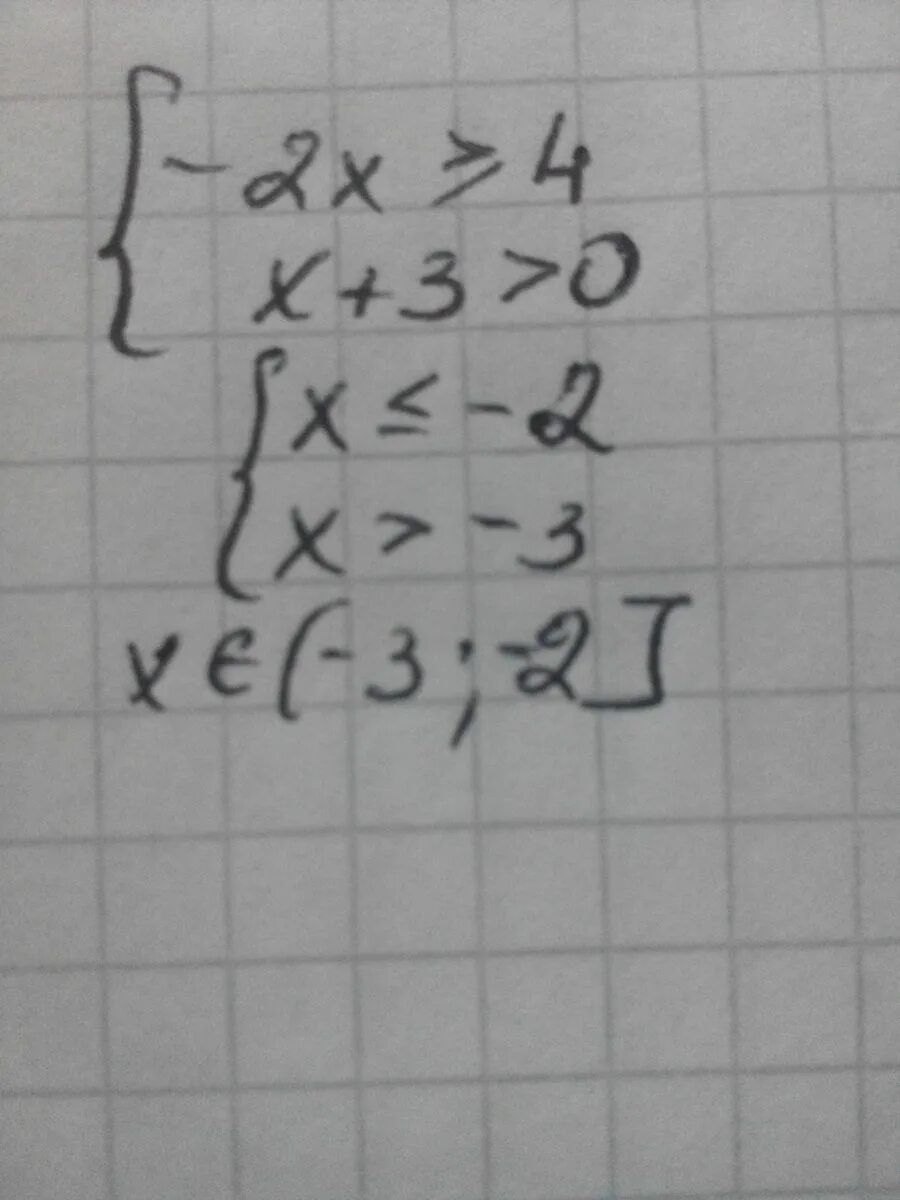 { -2x ≥ 4
x + 3 > 0
{ x ≤ -2
x > -3
x ∈ (-3; -2]